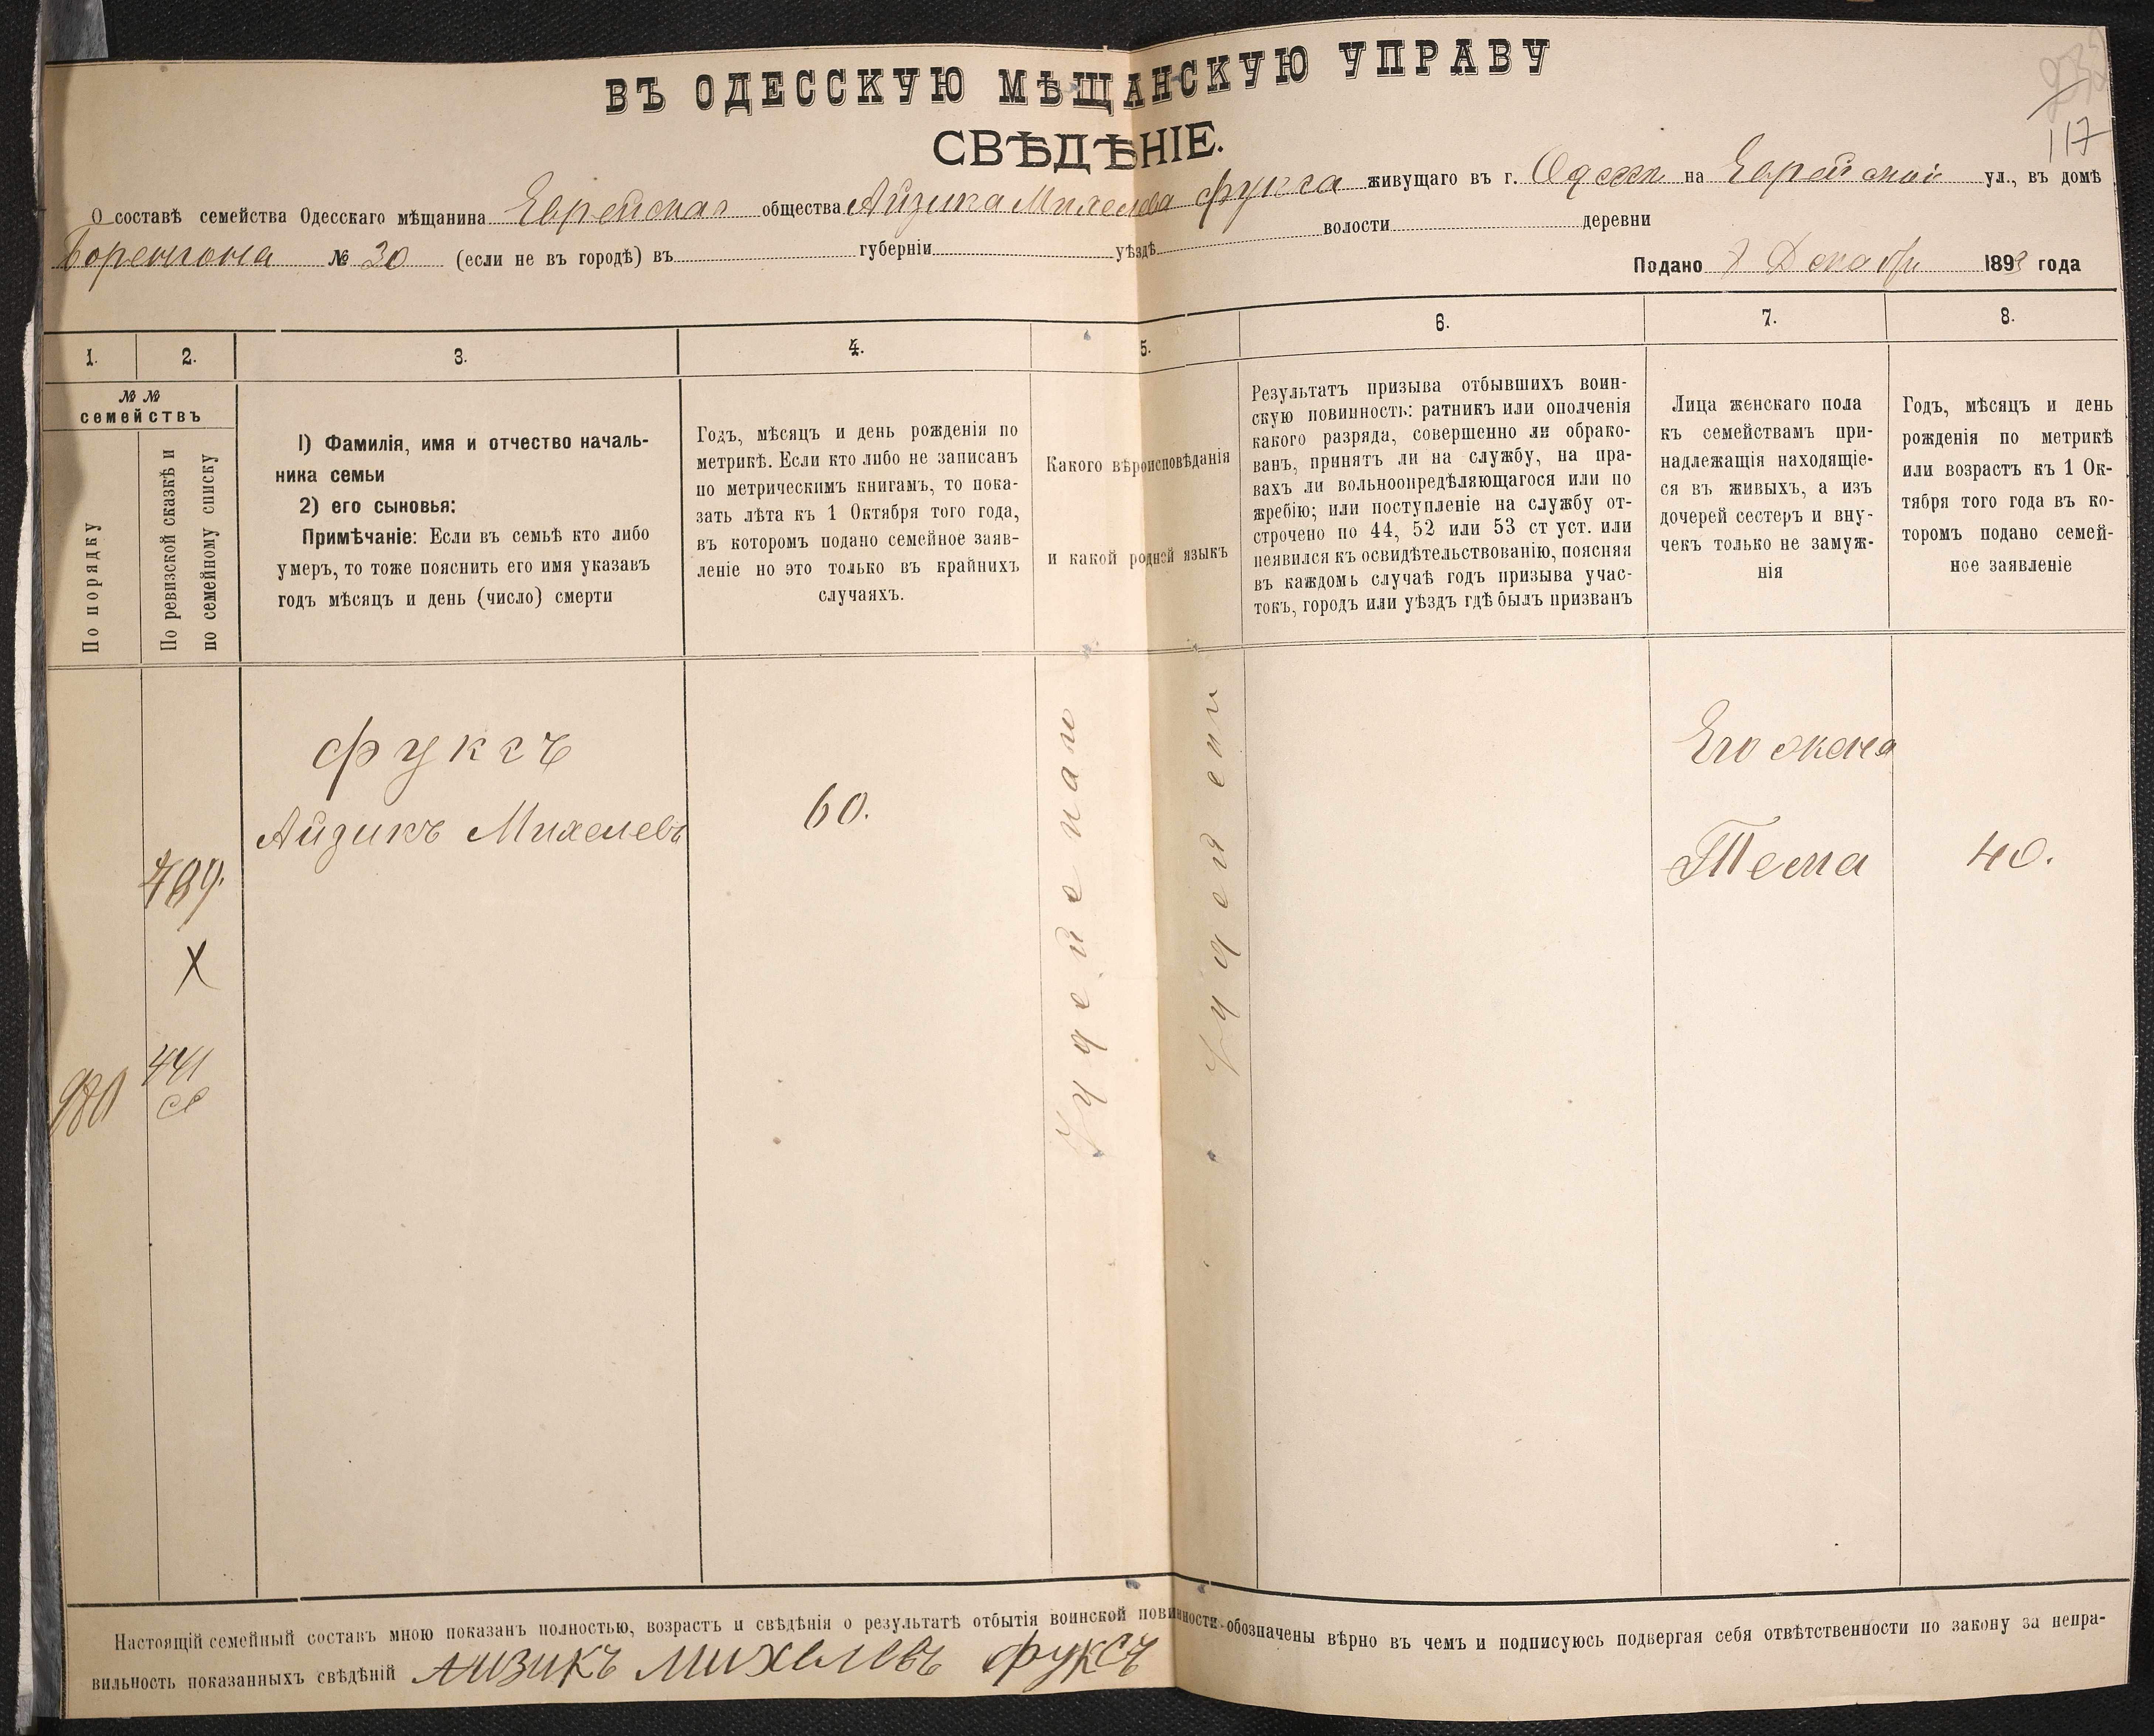 ВЪ ОДЕССКУЮ МѢЩАНСКУЮ УПРАВУ
СВѢДѢНІЕ.
117
О составѣ семейства Одесскаго мѣщанина Еврейская общества Айзика Михелева Фукса живущаго въ г. Одессѣ на Еврейской ул., въ домѣ
№ 30 (если не въ городѣ) въ губерніи уѣздѣ волости деревни
Подано 7 Декабр 1893 года
1. 2. 3. 4. 5. 6. 7. 8.
№ №
семействъ
По порядку
По ревизской сказкѣ и
по семейному списку
1) Фамилія, имя и отчество началь-
ника семьи
2) его сыновья:
Примѣчаніе: Если въ семьѣ кто либо
умеръ, то тоже пояснить его имя указавъ
годъ мѣсяцъ и день (число) смерти
Годъ, мѣсяцъ и день рожденія по
метрикѣ. Если кто либо не записанъ
по метрическимъ книгамъ, то пока-
зать лѣта къ 1 Октября того года,
въ которомъ подано семейное заяв-
леніе но это только въ крайнихъ
случаяхъ.
Какого вѣроисповѣданія
и какой родной языкъ
Результатъ призыва отбывшихъ воин-
скую повинность: ратникъ или ополченія
какого разряда, совершенно ли обрако-
ванъ, принятъ ли на службу, на пра-
вахъ ли вольноопредѣляющагося или по
жребію; или поступленіе на службу от-
строчено по 44, 52 или 53 ст уст. или
неявился къ освидѣтельствованію, поясняя
въ каждомъ случаѣ годъ призыва учас-
токъ, городъ или уѣздъ гдѣ былъ призванъ
Лица женскаго пола
къ семействамъ при-
надлежащія находящіе-
ся въ живыхъ, а изъ
дочерей сестеръ и вну-
чекъ только не замуж-
нія
Годъ, мѣсяцъ и день
рожденія по метрикѣ
или возрастъ къ 1 Ок-
тября того года въ ко-
торомъ подано семей-
ное заявленіе
Фуксъ
Айзикъ Михелевъ
60.
Его жена
Тема
40.
789.
X
441
980
Настоящій семейный составъ мною показанъ полностью, возрастъ и свѣдѣнія о результатѣ отбытія воинской повинности обозначены вѣрно въ чемъ и подписуюсь подвергая себя отвѣтственности по закону за непра-
вильность показанныхъ свѣдѣній Аизикъ Михелевъ Фуксъ